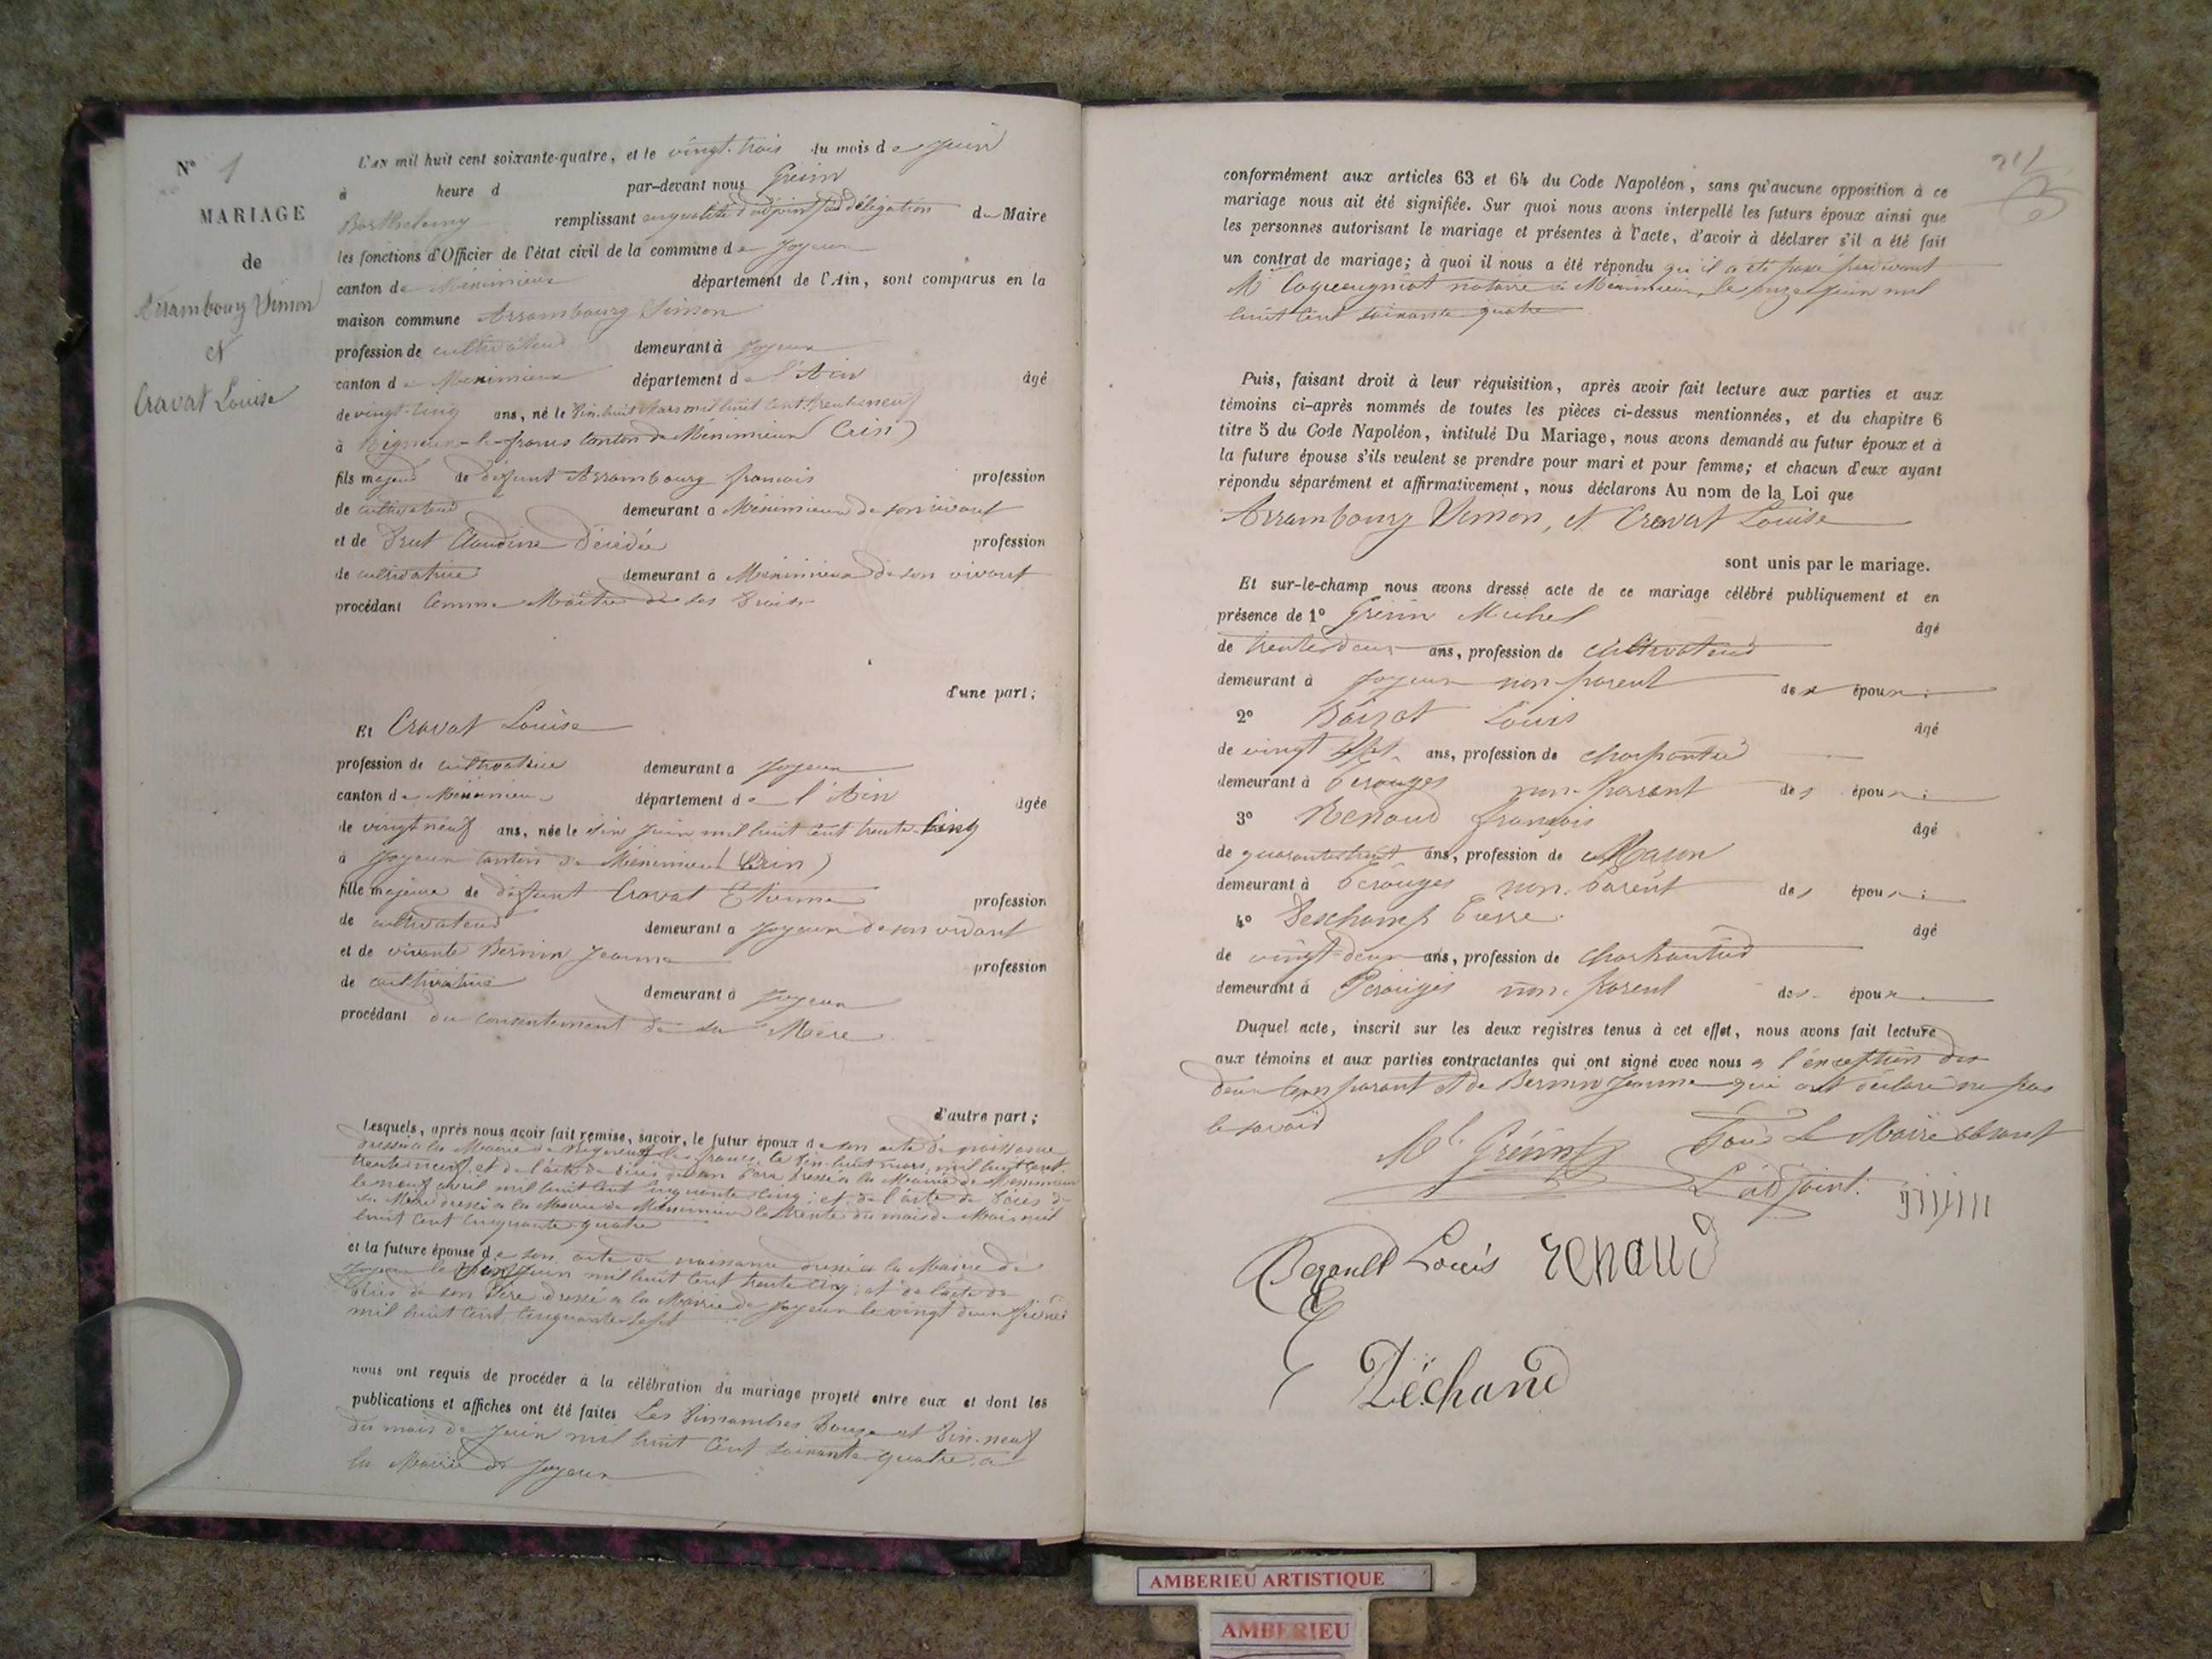 N° 1
MARIAGE
de
Arrambourg Simon
et
Cravat Louise
L'AN mil huit cent soixante-quatre, et le vingt-trois du mois de juin
à heure d par-devant nous Grenin
Barthelemy remplissant en qualité d'adjoint par délégation du Maire
les fonctions d'Officier de l'état civil de la commune de Joyeux
canton de Méximieux département de l'Ain, sont comparus en la
maison commune Arrambourg Simon
profession de cultivateur demeurant à Joyeux
canton de Meximieux département de l'Ain âgé
de vingt-cinq ans, né le dix-huit Mars mil huit cent trente-neuf
à le-francs canton de Meximieux (Ain)
fils majeur de défunt Arrambourg francois profession
de cultivateur demeurant à Méximieux de son vivant
et de Brut Claudine Décédée profession
de cultivatrice demeurant à Meximieux de son vivant
procédant comme Maître de ses Droits
d'une part;
Et Cravat Louise
profession de cultivatrice demeurant à Joyeux
canton de Méximieux département de l'Ain âgée
de vingt neuf ans, née le dix juin mil huit cent trente-cinq
à Joyeux canton de Méximieux (Ain)
fille majeure de défunt Cravat Etienne profession
de cultivateur demeurant à Joyeux de son vivant
et de vivante Bernin Jeanne profession
de cultivatrice demeurant à Joyeux
procédant du consentement de sa Mère
d'autre part;
Lesquels, après nous avoir fait remise, savoir, le futur époux de son acte de naissance
dressé à la Mairie de francs le dix-huit mars mil huit cent
trente neuf, et de l'acte de décès de son Père dressé à la Mairie de Meximieux
le neuf avril mil huit cent cinquante cinq; et de l'acte de Décès de
sa Mère dressé à la Mairie de Meximieux le trente du mois de Mai mil
huit cent cinquante-quatre
et la future épouse de son acte de naissance dressé à la Mairie de
Joyeux le juin mil huit cent trente cinq; et de l'acte de
Décès de son Père dressé à la Mairie de Joyeux le vingt deux février
mil huit cent cinquante sept
nous ont requis de procéder à la célébration du mariage projeté entre eux et dont les
publications et affiches ont été faites Les Dimanches Douze et Dix-neuf
du mois de Juin mil huit cent soixante quatre, à
la Mairie de Joyeux
conformément aux articles 63 et 64 du Code Napoléon, sans qu'aucune opposition à ce
mariage nous ait été signifiée. Sur quoi nous avons interpellé les futurs époux ainsi que
les personnes autorisant le mariage et présentes à l'acte, d'avoir à déclarer s'il a été fait
un contrat de mariage; à quoi il nous a été répondu qu'il a été passé pardevant
Me Coqueugniot notaire à Méximieux, le onze juin mil
huit cent soixante quatre
Puis, faisant droit à leur réquisition, après avoir fait lecture aux parties et aux
témoins ci-après nommés de toutes les pièces ci-dessus mentionnées, et du chapitre 6
titre 5 du Code Napoléon, intitulé Du Mariage, nous avons demandé au futur époux et à
la future épouse s'ils veulent se prendre pour mari et pour femme; et chacun d'eux ayant
répondu séparément et affirmativement, nous déclarons Au nom de la Loi que
Arrambourg Simon, et Cravat Louise
sont unis par le mariage.
Et sur-le-champ nous avons dressé acte de ce mariage célébré publiquement et en
présence de 1° Grenin Michel âgé
de trente-deux ans, profession de cultivateur
demeurant à Joyeux non-parent des époux;
2° Louis âgé
de vingt sept ans, profession de charpentier
demeurant à Perouges non-parent des époux;
3° Renaud françois âgé
de quarante-huit ans, profession de Maçon
demeurant à Perouges non-parent des époux;
4° Deschamp Pierre âgé
de vingt-deux ans, profession de charpentier
demeurant à Perouges non-parent des époux
Duquel acte, inscrit sur les deux registres tenus à cet effet, nous avons fait lecture
aux témoins et aux parties contractantes qui ont signé avec nous à l'exception des
deux comparant et de Bernin Jeanne qui ont déclaré ne pas
le savoir
Ml Grénin Pour Le Maire absent
L'adjoint.
Louis renaud
Déchand
AMBERIEU ARTISTIQUE
AMBERIEU